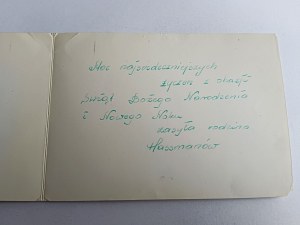 Moc najserdeczniejszych
życzeń z okazji
Świąt Bożego Narodzenia
i Nowego Roku
życzy rodzina